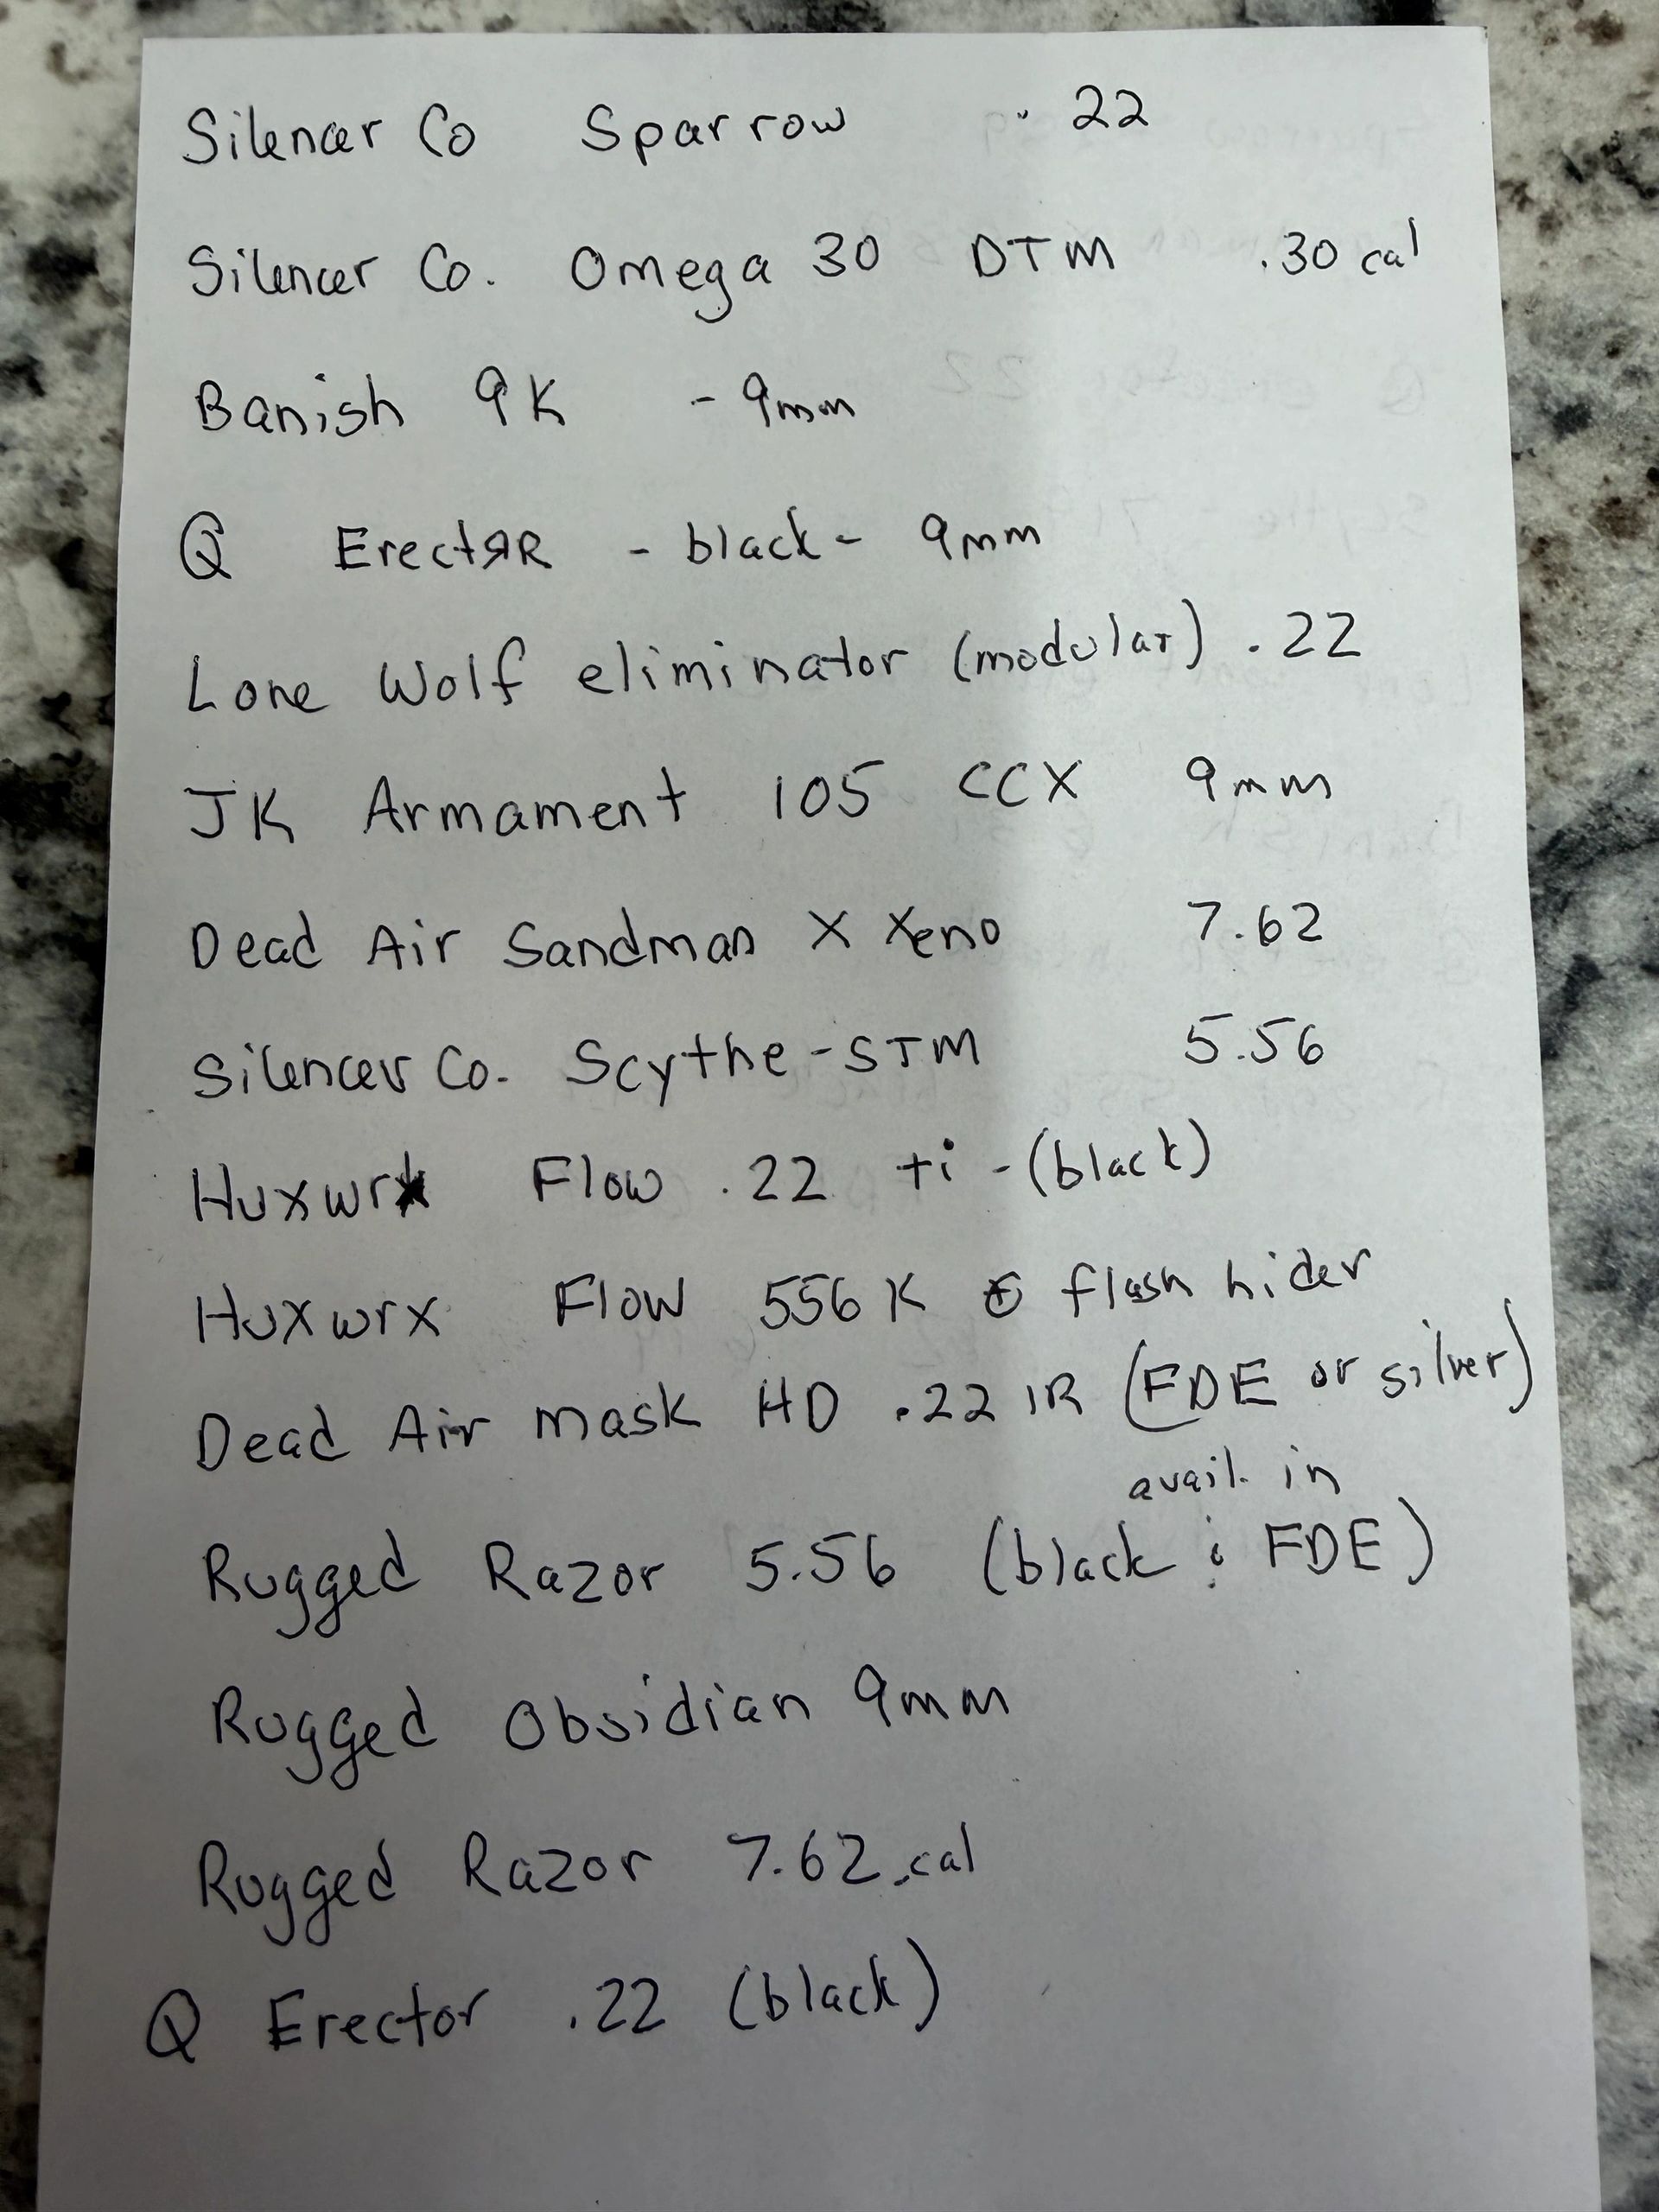 Silencer Co Sparrow .22
Silencer Co. Omega 30 DTM .30 cal
Banish 9K - 9mm
Q ErectЯR - black - 9mm
Lone Wolf eliminator (modular) .22
JK Armament 105 CCX 9mm
Dead Air Sandman X Xeno 7.62
Silencer Co. Scythe-STM 5.56
Huxwrx Flow .22 ti - (black)
Huxwrx Flow 556K flash hider
Dead Air mask HD .22 IR (FDE or silver)
avail. in
Rugged Razor 5.56 (black & FDE)
Rugged Obsidian 9mm
Rugged Razor 7.62 cal
Q Erector .22 (black)